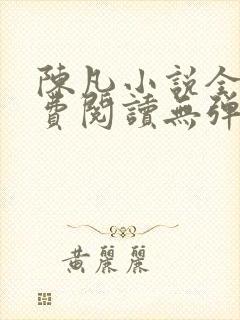 陳凡小說全
費閱讀無彈
黃麗麗